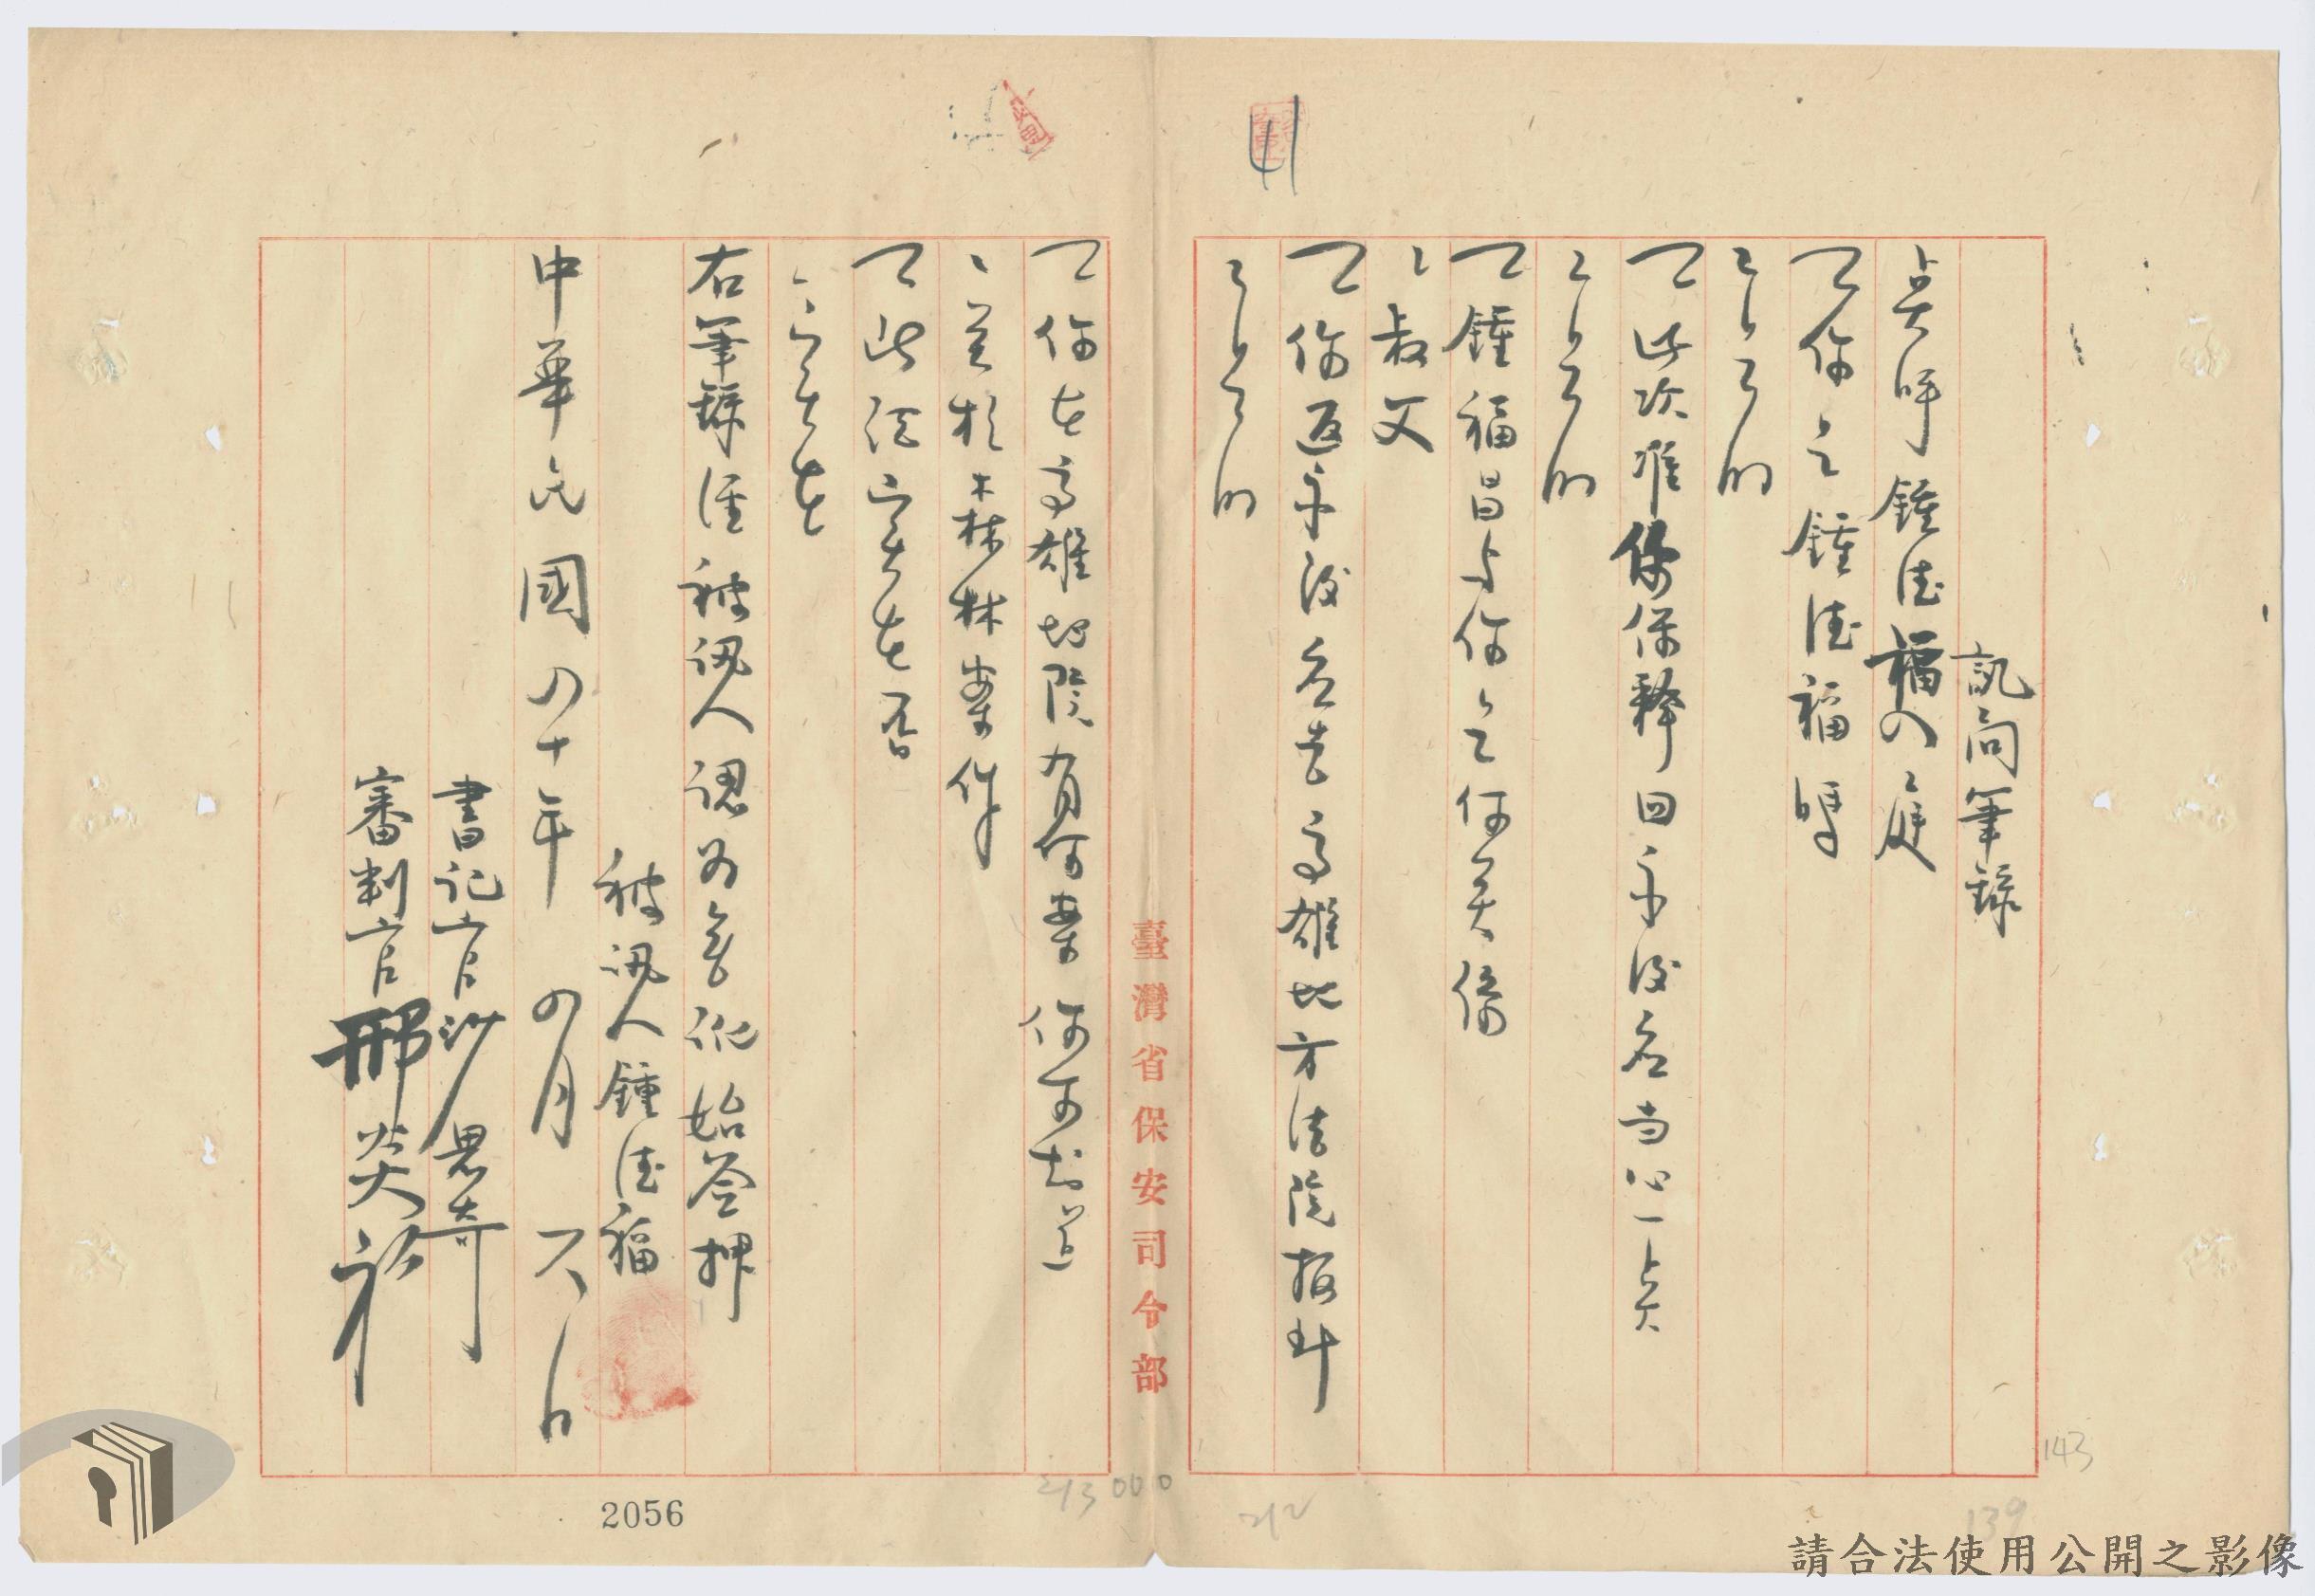 訊問筆錄
点呼鍾德福入庭
問你是鍾德福嗎
答是的
問此次准你保釋回家後应当心一点
答是的
問鍾福昌与你是何关係
答叔父
問你返家後应去高雄地方法院报到
答是的
問你在高雄地院有何案你可知道
答关於森林案件
問此話实在否
答实在
右筆錄經被訊人認为無訛始簽押
被訊人鍾德福
中華民國四十年四月六日
書記官沙思奇
審判官邢炎初
臺灣省保安司令部
41
143
139
212
213
000
2056
請合法使用公開之影像